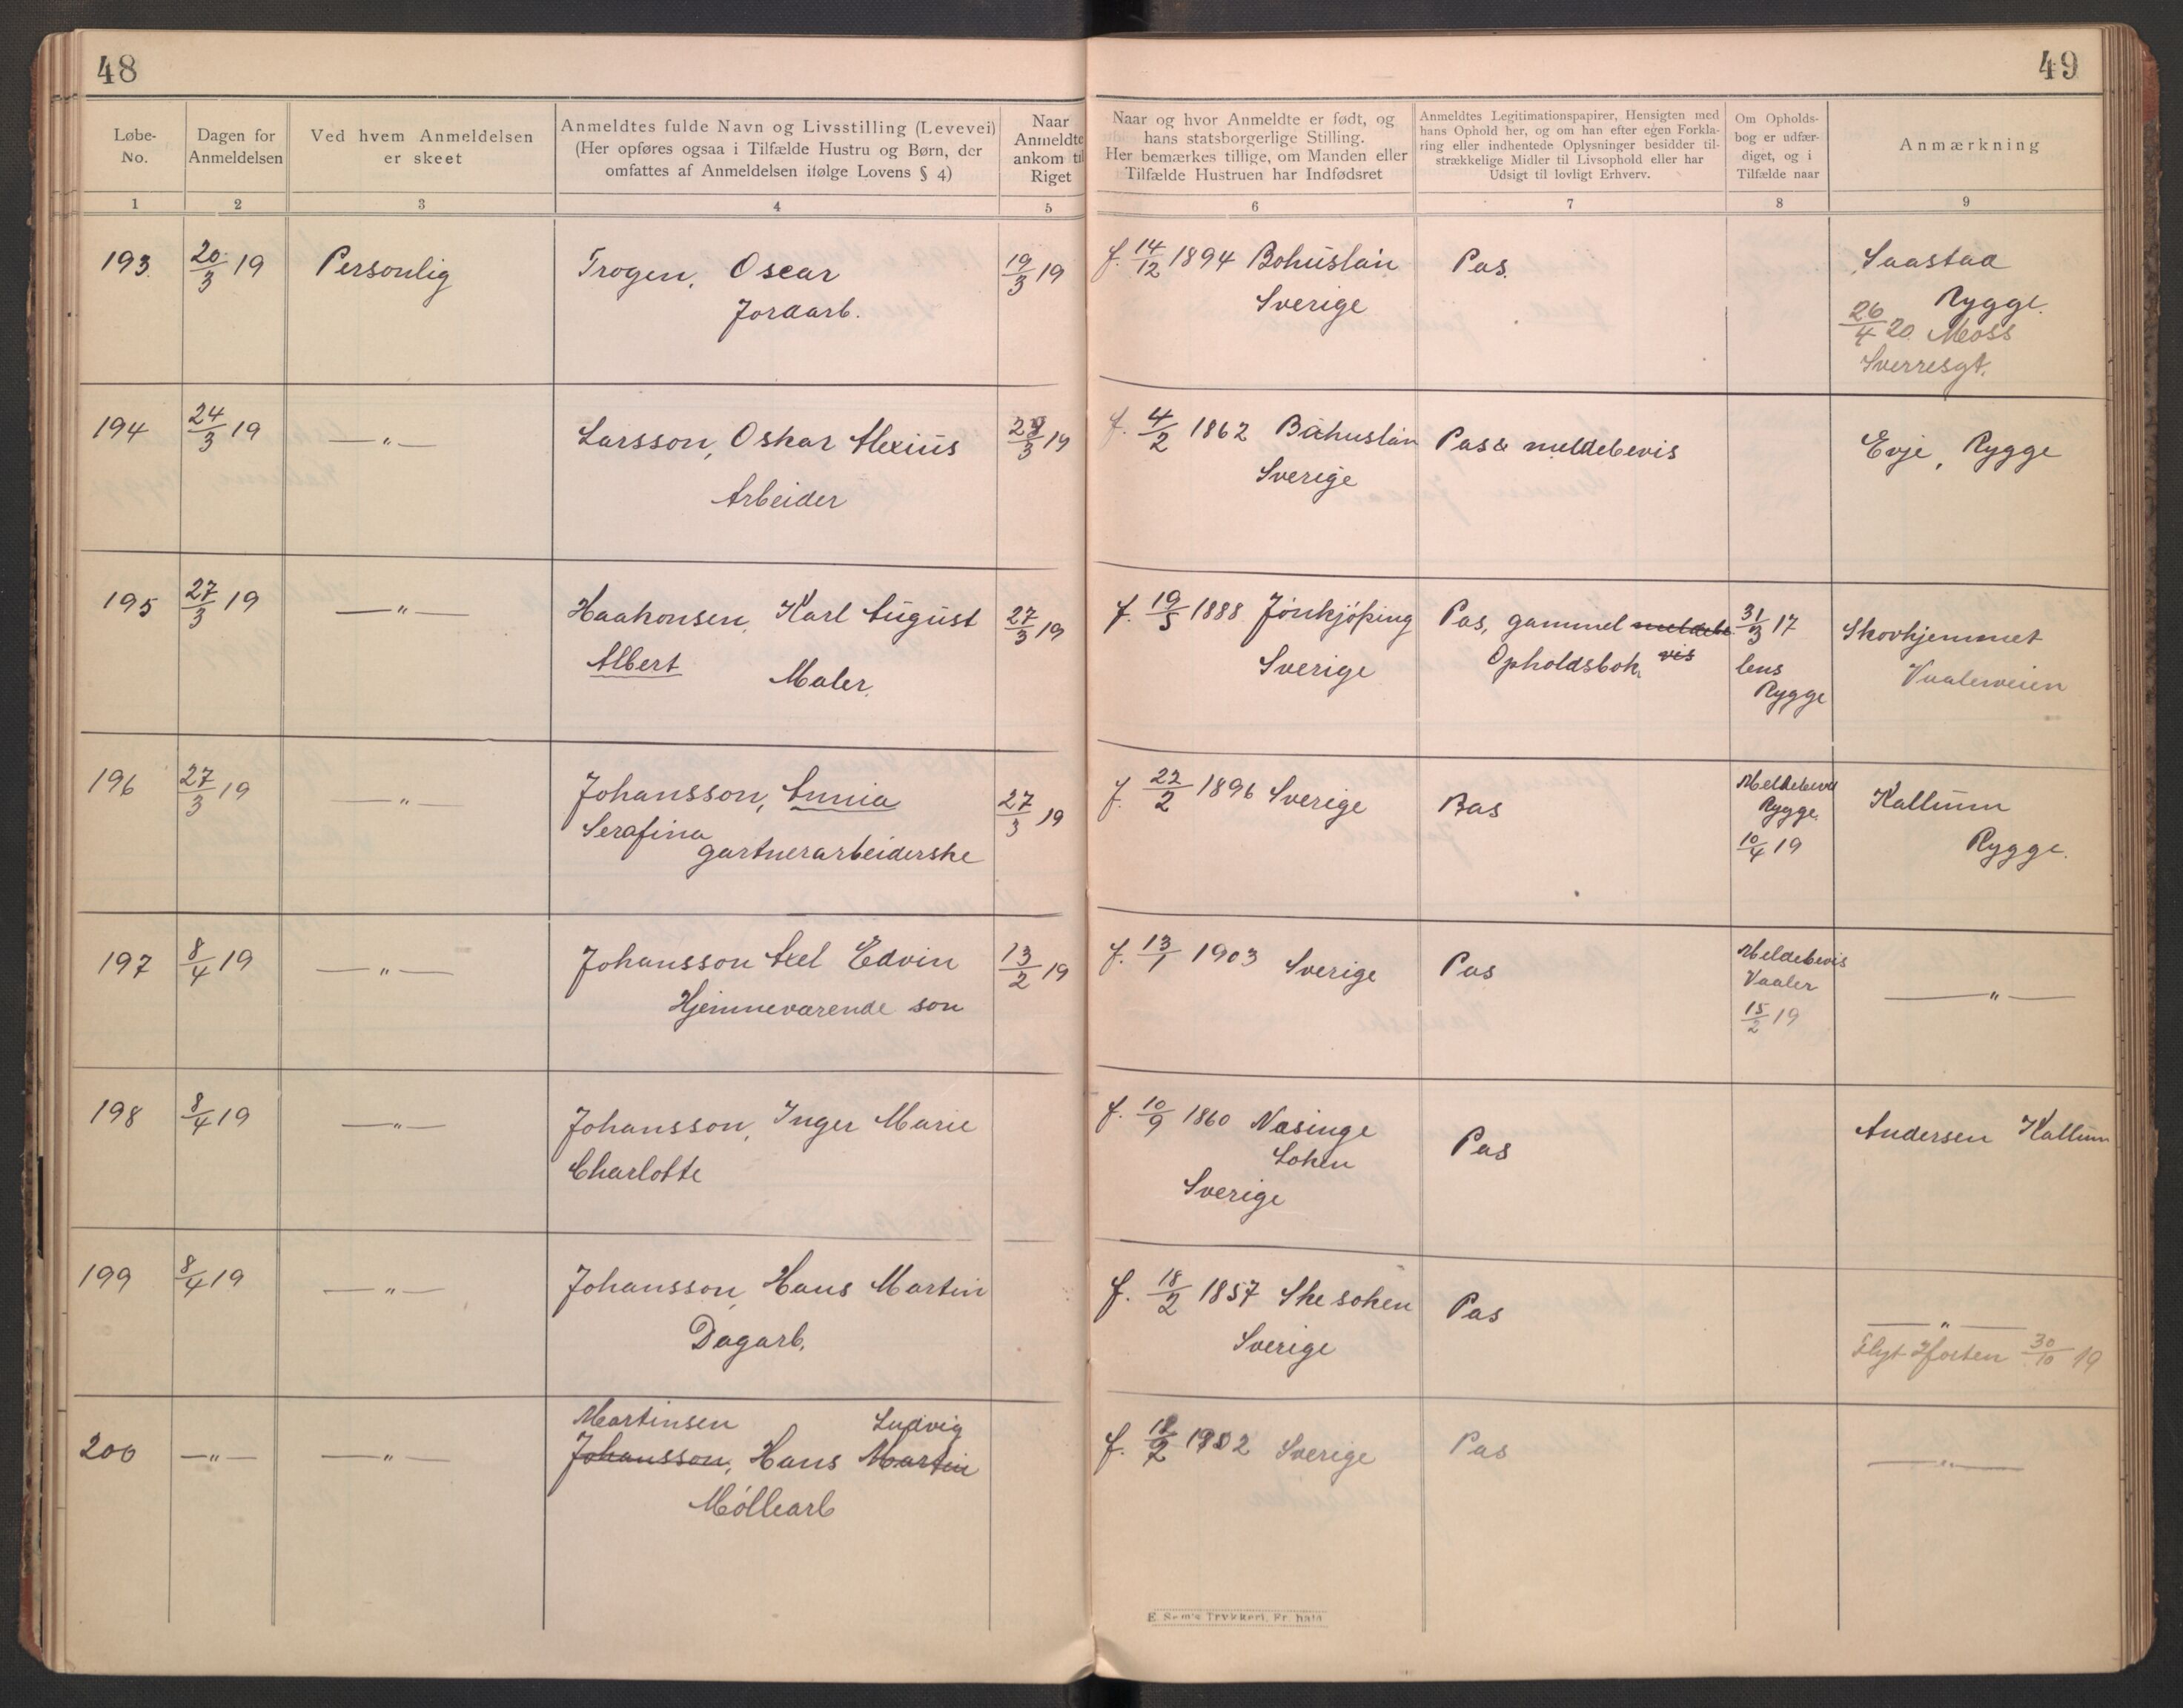 48
Løbe-No.
Dagen for Anmeldelsen
Ved hvem Anmeldelsen er skeet
Anmeldtes fulde Navn og Livsstilling (Levevei)
(Her opføres ogsaa i Tilfælde Hustru og Børn, der
omfattes af Anmeldelsen ifølge Lovens § 4)
Naar Anmeldte ankom til Riget
1 2 3 4 5
193 20/3 19 Personlig Trogen, Oscar 19/3 19
Jordarb.
194 24/3 19 —„— Larsson, Oskar Alexius 23/3 19
Arbeider
195 27/3 19 —„— Haakonsen, Karl August 27/3 19
Albert
Maler.
196 27/3 19 —„— Johansson, Annia 27/3 19
Serafina
gartnerarbeiderske
197 8/4 19 —„— Johansson Axel Edvin 13/2 19
Hjemmeværende son
198 8/4 19 —„— Johansson, Inger Marie
Charlotte
199 8/4 19 —„— Johansson, Hans Martin
Dagarb.
Martinsen Ludvig
200 —„— —„— Johansson, Hans Martin
Møllearb
49
Naar og hvor Anmeldte er født, og
hans statsborgerlige Stilling.
Her bemærkes tillige, om Manden eller
Tilfælde Hustruen har Indfødsret
Anmeldtes Legitimationspapirer, Hensigten med
hans Ophold her, og om han efter egen Forkla-
ring eller indhentede Oplysninger besidder til-
strækkelige Midler til Livsophold eller har
Udsigt til lovligt Erhverv.
Om Opholds-
bog er udfær-
diget, og i
Tilfælde naar
Anmærkning
6 7 8 9
f. 14/12 1894 Bohuslän Pas. Saastad
Sverige Rygge.
26/4 20. Moss
Sverresgt.
f. 4/2 1862 Båhuslän Pas & meldebevis Evje, Rygge
Sverige
f. 19/5 1888 Jönkjöping Pas, gammel meldebe 31/3 17 Skovhjemmet
Sverige Opholdsbok. vis lens Vaalerveien
Rygge
f. 22/2 1896 Sverige Pas Meldebevis Kallum
Rygge. Rygge.
10/4 19
f. 13/1 1903 Sverige Pas Meldebevis
Vaaler —„—
15/2 19
f. 10/9 1860 Näsinge Pas Andersen Kallum
Soken
Sverige
f. 18/2 1857 Skesoken Pas —„—
Sverige Flyt Horten 30/10 19
f. 18/2 1902 Sverige Pas —„—
E. Sem's Trykkeri, Fr.hald